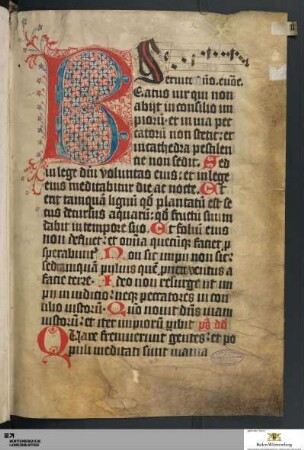 Seruite dno. euoue.
Eatus uir qui non
abijt in consilio im
pioru et in uia pec
catoru non stetit: et
in cathedra pestilen
tie non sedit. Sed
in lege dni uoluntas eius: et in lege
eius meditabitur die ac nocte. Et
erit tamqua lignu qd plantatu est se
cus decursus aquaru: qd fructu suum
dabit in tempore suo. Et foliu eius
non defluet: et omia quecuqz faciet p
sperabunt. Non sic impij non sic:
sed tamqua puluis que proicit uentus a
facie terre. Ideo non resurgent im
pij in iudicio: neqz peccatores in con
silio iustoru. Qm nouit dns uiam
iustoru: et iter impioru pibit. ps dd
Quare fremuerunt gentes: et po
puli meditati sunt inania
Baden-Württemberg